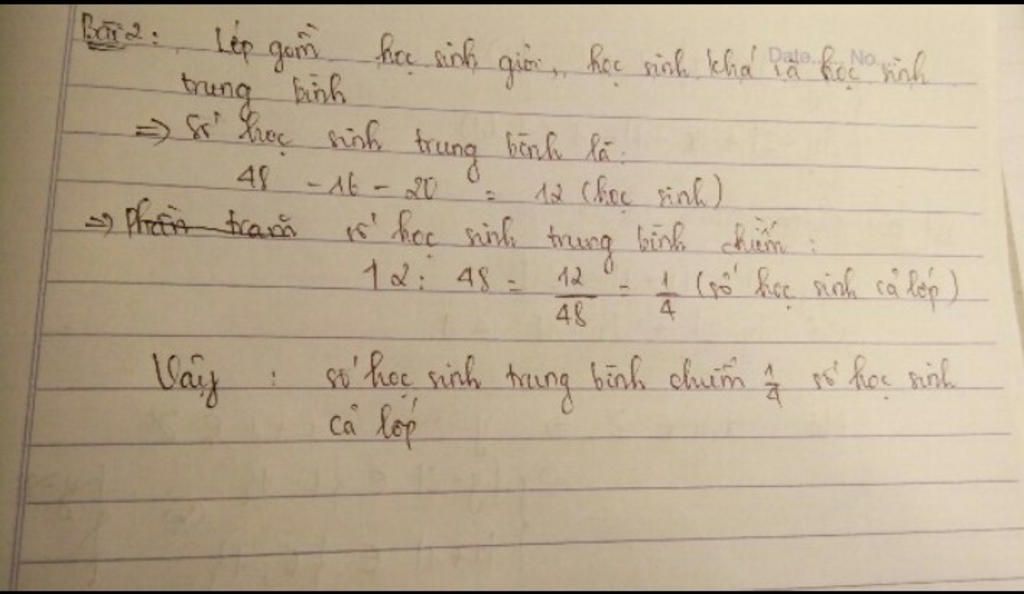 Bài 2: Lớp gồm học sinh giỏi, học sinh khá và học sinh
Date No
trung bình
=> Số học sinh trung bình là:
48 - 16 - 20 = 12 (học sinh)
=> Phần trăm số học sinh trung bình chiếm:
12 : 48 = 12/48 = 1/4 (số học sinh cả lớp)
Vậy : số học sinh trung bình chiếm 1/4 số học sinh
cả lớp